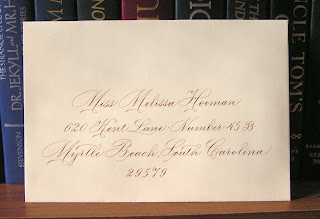 Miss Melissa Hooman
620 Kent Lane Number 45B
Myrtle Beach, South Carolina
29579
THE STRANGE
DR. JEKYLL and MR. H
STEVENSON
CLE TOM'S